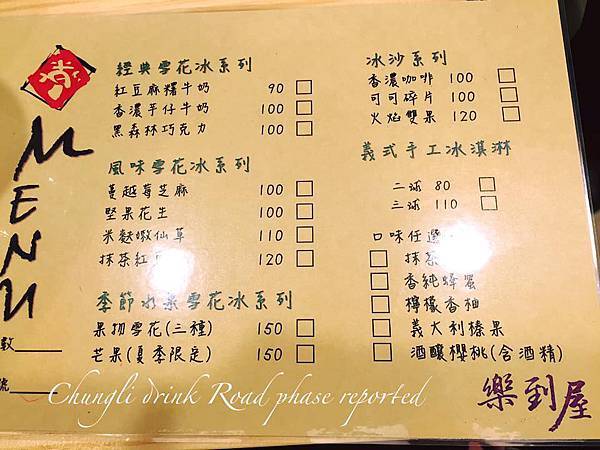 MENU
經典雪花冰系列
紅豆麻糬牛奶 90
香濃芋仔牛奶 100
黑森林巧克力 100
風味雪花冰系列
蔓越莓芝麻 100
堅果花生 100
米麩嫩仙草 110
抹茶紅 120
季節水果雪花冰系列
果物雪花(三種) 150
芒果(夏季限定) 150
數
號
冰沙系列
香濃咖啡 100
可可碎片 100
火焰雙果 120
義式手工冰淇淋
二球 80
三球 110
口味任選
抹茶
香純蜂蜜
檸檬香柚
義大利榛果
酒釀櫻桃(含酒精)
樂到屋
Chungli drink Road phase reported